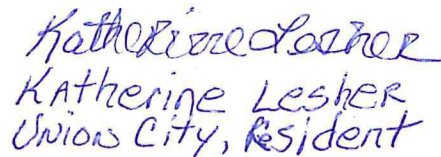 Katherine Lesher
Katherine Lesher
Union City, Resident